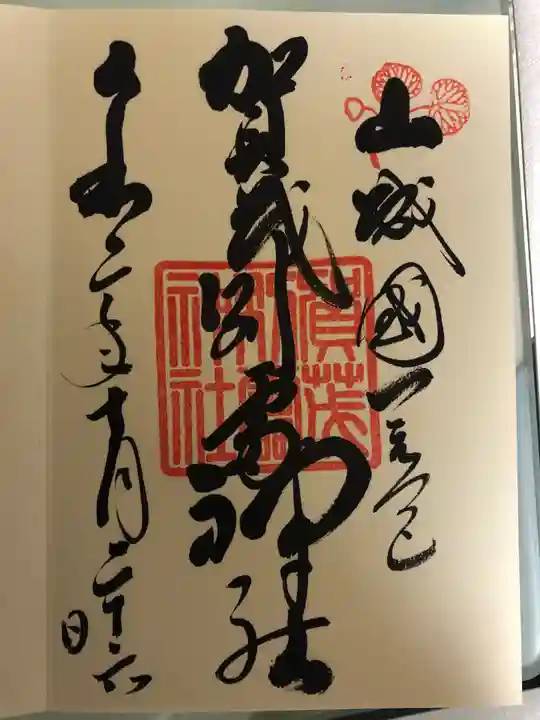 山城國一之宮
賀茂別雷神社
令和二年十月二十六日
賀茂別雷神社